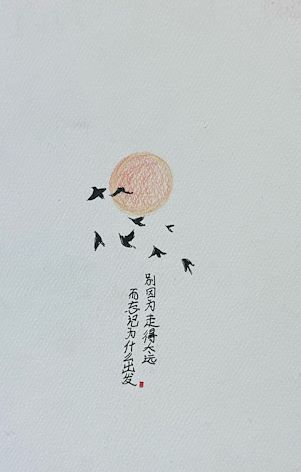 别因为走得太远
而忘记为什么出发